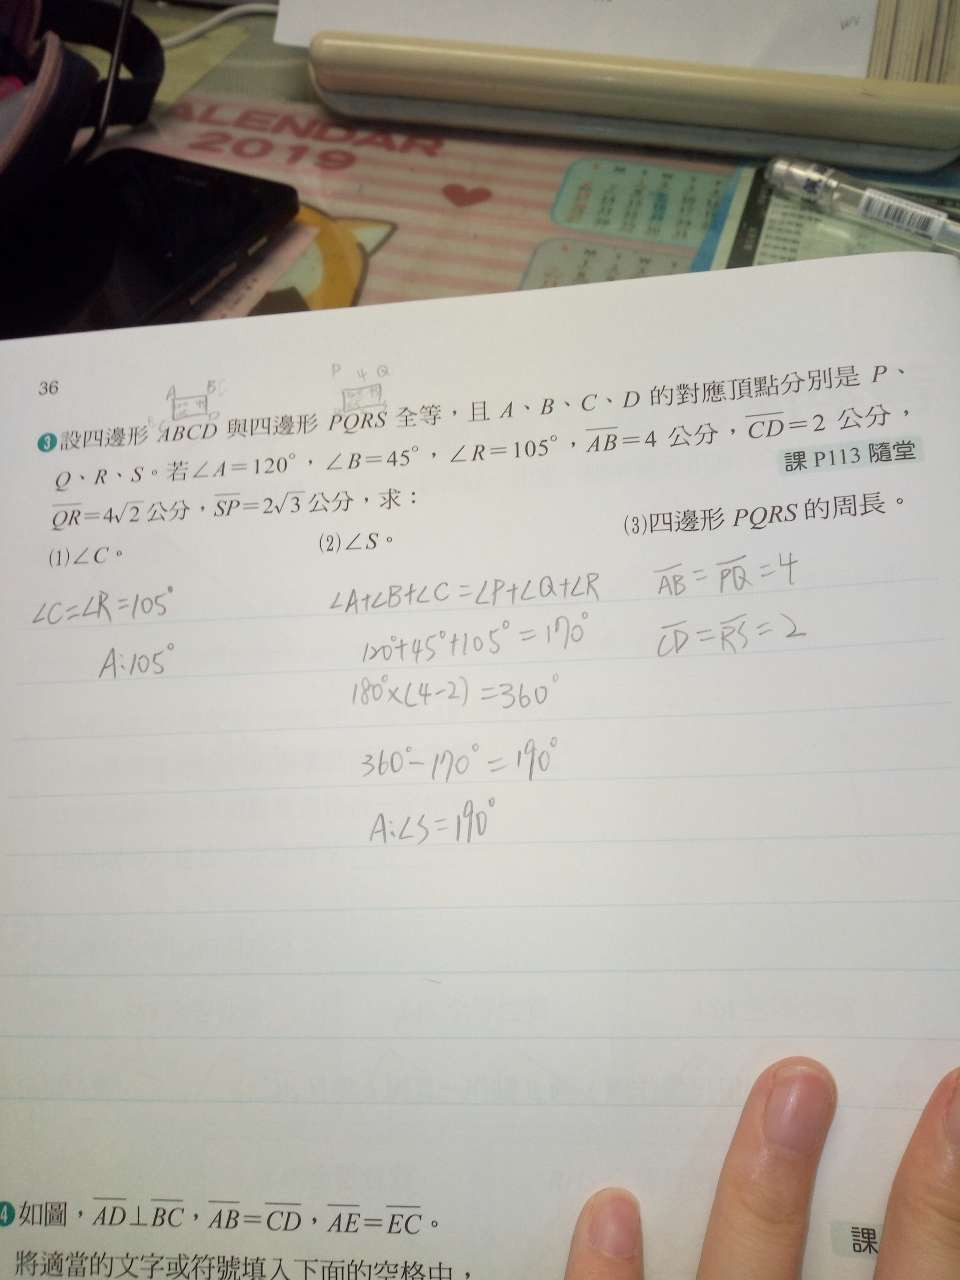 CALENDAR
2019
36
A B
P 4 Q
❸設四邊形 ABCD 與四邊形 PQRS 全等,且 A、B、C、D 的對應頂點分別是 P、
Q、R、S。若∠A=120°,∠B=45°,∠R=105°,AB=4 公分,CD=2 公分,
QR=4√2公分,SP=2√3公分,求:
課 P113 隨堂
(1)∠C。 (2)∠S。 (3)四邊形 PQRS 的周長。
∠C=∠R=105°
A:105°
∠A+∠B+∠C=∠P+∠Q+∠R
120°+45°+105°=170°
180°×(4-2)=360°
360°-170°=190°
A:∠S=190°
AB=PQ=4
CD=RS=2
❹如圖,AD⊥BC,AB=CD,AE=EC。
課
將適當的文字或符號填入下面的空格中,